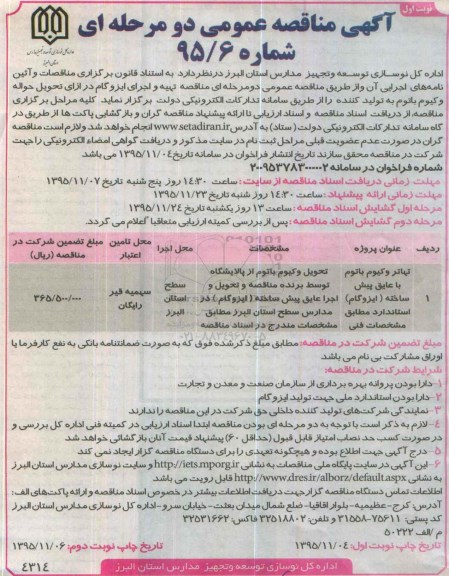 نوبت اول
آگهی مناقصه عمومی دو مرحله ای
شماره ۹۵/۶
اداره کل نوسازی توسعه وتجهیز مدارس استان البرز درنظردارد به استناد قانون برگزاری مناقصات وآئین
نامه‌های اجرایی آن واز طریق مناقصه عمومی دومرحله ای مناقصه تهیه و اجرای ایزوگام در ازای تحویل حواله
وکیوم باتوم به تولید کننده را از طریق سامانه تدارکات الکترونیکی دولت برگزار نماید. کلیه مراحل برگزاری
مناقصه، از دریافت اسناد مناقصه و اسناد ارزیابی تا ارائه پیشنهاد مناقصه گران و بازگشایی پاکت ها از طریق در
گاه سامانه تدارکات الکترونیکی دولت ( ستاد) به آدرس www.setadiran.ir انجام خواهد شد ولازم است مناقصه
گران در صورت عدم عضویت قبلی مراحل ثبت نام در سایت مذکور و دریافت گواهی امضاء الکترونیکی را جهت
شرکت در مناقصه محقق سازند تاریخ انتشار فراخوان در سامانه تاریخ ۱۳۹۵/۱۱/۰۴ می باشد
شماره فراخوان در سامانه ۲۰۰۹۵۳۷۸۳۰۰۰۰۰۲
مهلت زمانی دریافت اسناد مناقصه از سایت: ساعت ۱۴:۳۰ روز پنج شنبه تاریخ ۱۳۹۵/۱۱/۰۷
مهلت زمانی ارائه پیشنهاد: ساعت ۱۴:۳۰ روز شنبه تاریخ ۱۳۹۵/۱۱/۲۳
مرحله اول گشایش اسناد مناقصه: ساعت ۱۳ روز یکشنبه تاریخ ۱۳۹۵/۱۱/۲۴
مرحله دوم گشایش اسناد مناقصه: پس از بررسی کمیته ارزیابی متعاقبا اعلام می گردد.
ردیف
عنوان پروژه
مشخصات
محل اجرا
محل تامین اعتبار
مبلغ تضمین شرکت در مناقصه (ریال)
۱
تهاتر وکیوم باتوم
با عایق پیش
ساخته ( ایزوگام)
استاندارد مطابق
مشخصات فنی
تحویل وکیوم باتوم از پالایشگاه
توسط برنده مناقصه و تحویل و
اجرا عایق پیش ساخته (ایزوگام) در
مدارس سطح استان البرز مطابق
مشخصات مندرج در اسناد مناقصه
سطح
استان
البرز
سهمیه قیر
رایگان
۳۶۵/۵۰۰/۰۰۰
مبلغ تضمین شرکت در مناقصه: مطابق مبلغ ذکر شده فوق که به صورت ضمانتنامه بانکی به نفع کارفرما یا
اوراق مشارکت بی نام می باشد
شرایط شرکت در مناقصه:
۱-دارا بودن پروانه بهره برداری از سازمان صنعت و معدن و تجارت
۲-دارا بودن استاندارد ملی جهت تولید ایزوگام
۳- نمایندگی شرکت‌های تولید کننده داخلی حق شرکت در این مناقصه را ندارند
۴-لازم به ذکر است با توجه به دو مرحله ای بودن مناقصه ابتدا اسناد ارزیابی در کمیته فنی اداره کل بررسی و
در صورت کسب حد نصاب امتیاز قابل قبول (حداقل ۶۰) پیشنهاد قیمت آنان بازگشائی خواهد شد
۵- درج آگهی جهت اطلاع بوده و هیچگونه تعهدی را برای دستگاه مناقصه گزار ایجاد نمی کند
۶-این آگهی در سایت پایگاه ملی مناقصات به نشانی http://iets.mporg.ir و سایت نوسازی مدارس استان البرز
به نشانی http://www.dres.ir/alborz/default.aspx قابل رویت می باشد
اطلاعات تماس دستگاه مناقصه گزار جهت دریافت اطلاعات بیشتر در خصوص اسناد مناقصه و ارائه پاکت‌های الف:
آدرس: کرج-عظیمیه-بلوار آفاقیا-ضلع شمال میدان بعثت-خیابان سرو-اداره کل نوسازی مدارس استان البرز
کد پستی: ۷۵۶۱۱-۳۱۵۵۸ و تلفن: ۳۲۵۱۸۸۰۲ فاکس: ۳۲۵۳۱۶۶۲
م/الف ۵۰۲۲۲
تاریخ چاپ نوبت اول: ۱۳۹۵/۱۱/۰۴ تاریخ چاپ نوبت دوم: ۱۳۹۵/۱۱/۰۶
اداره کل نوسازی توسعه وتجهیز مدارس استان البرز
۴۳۱۴